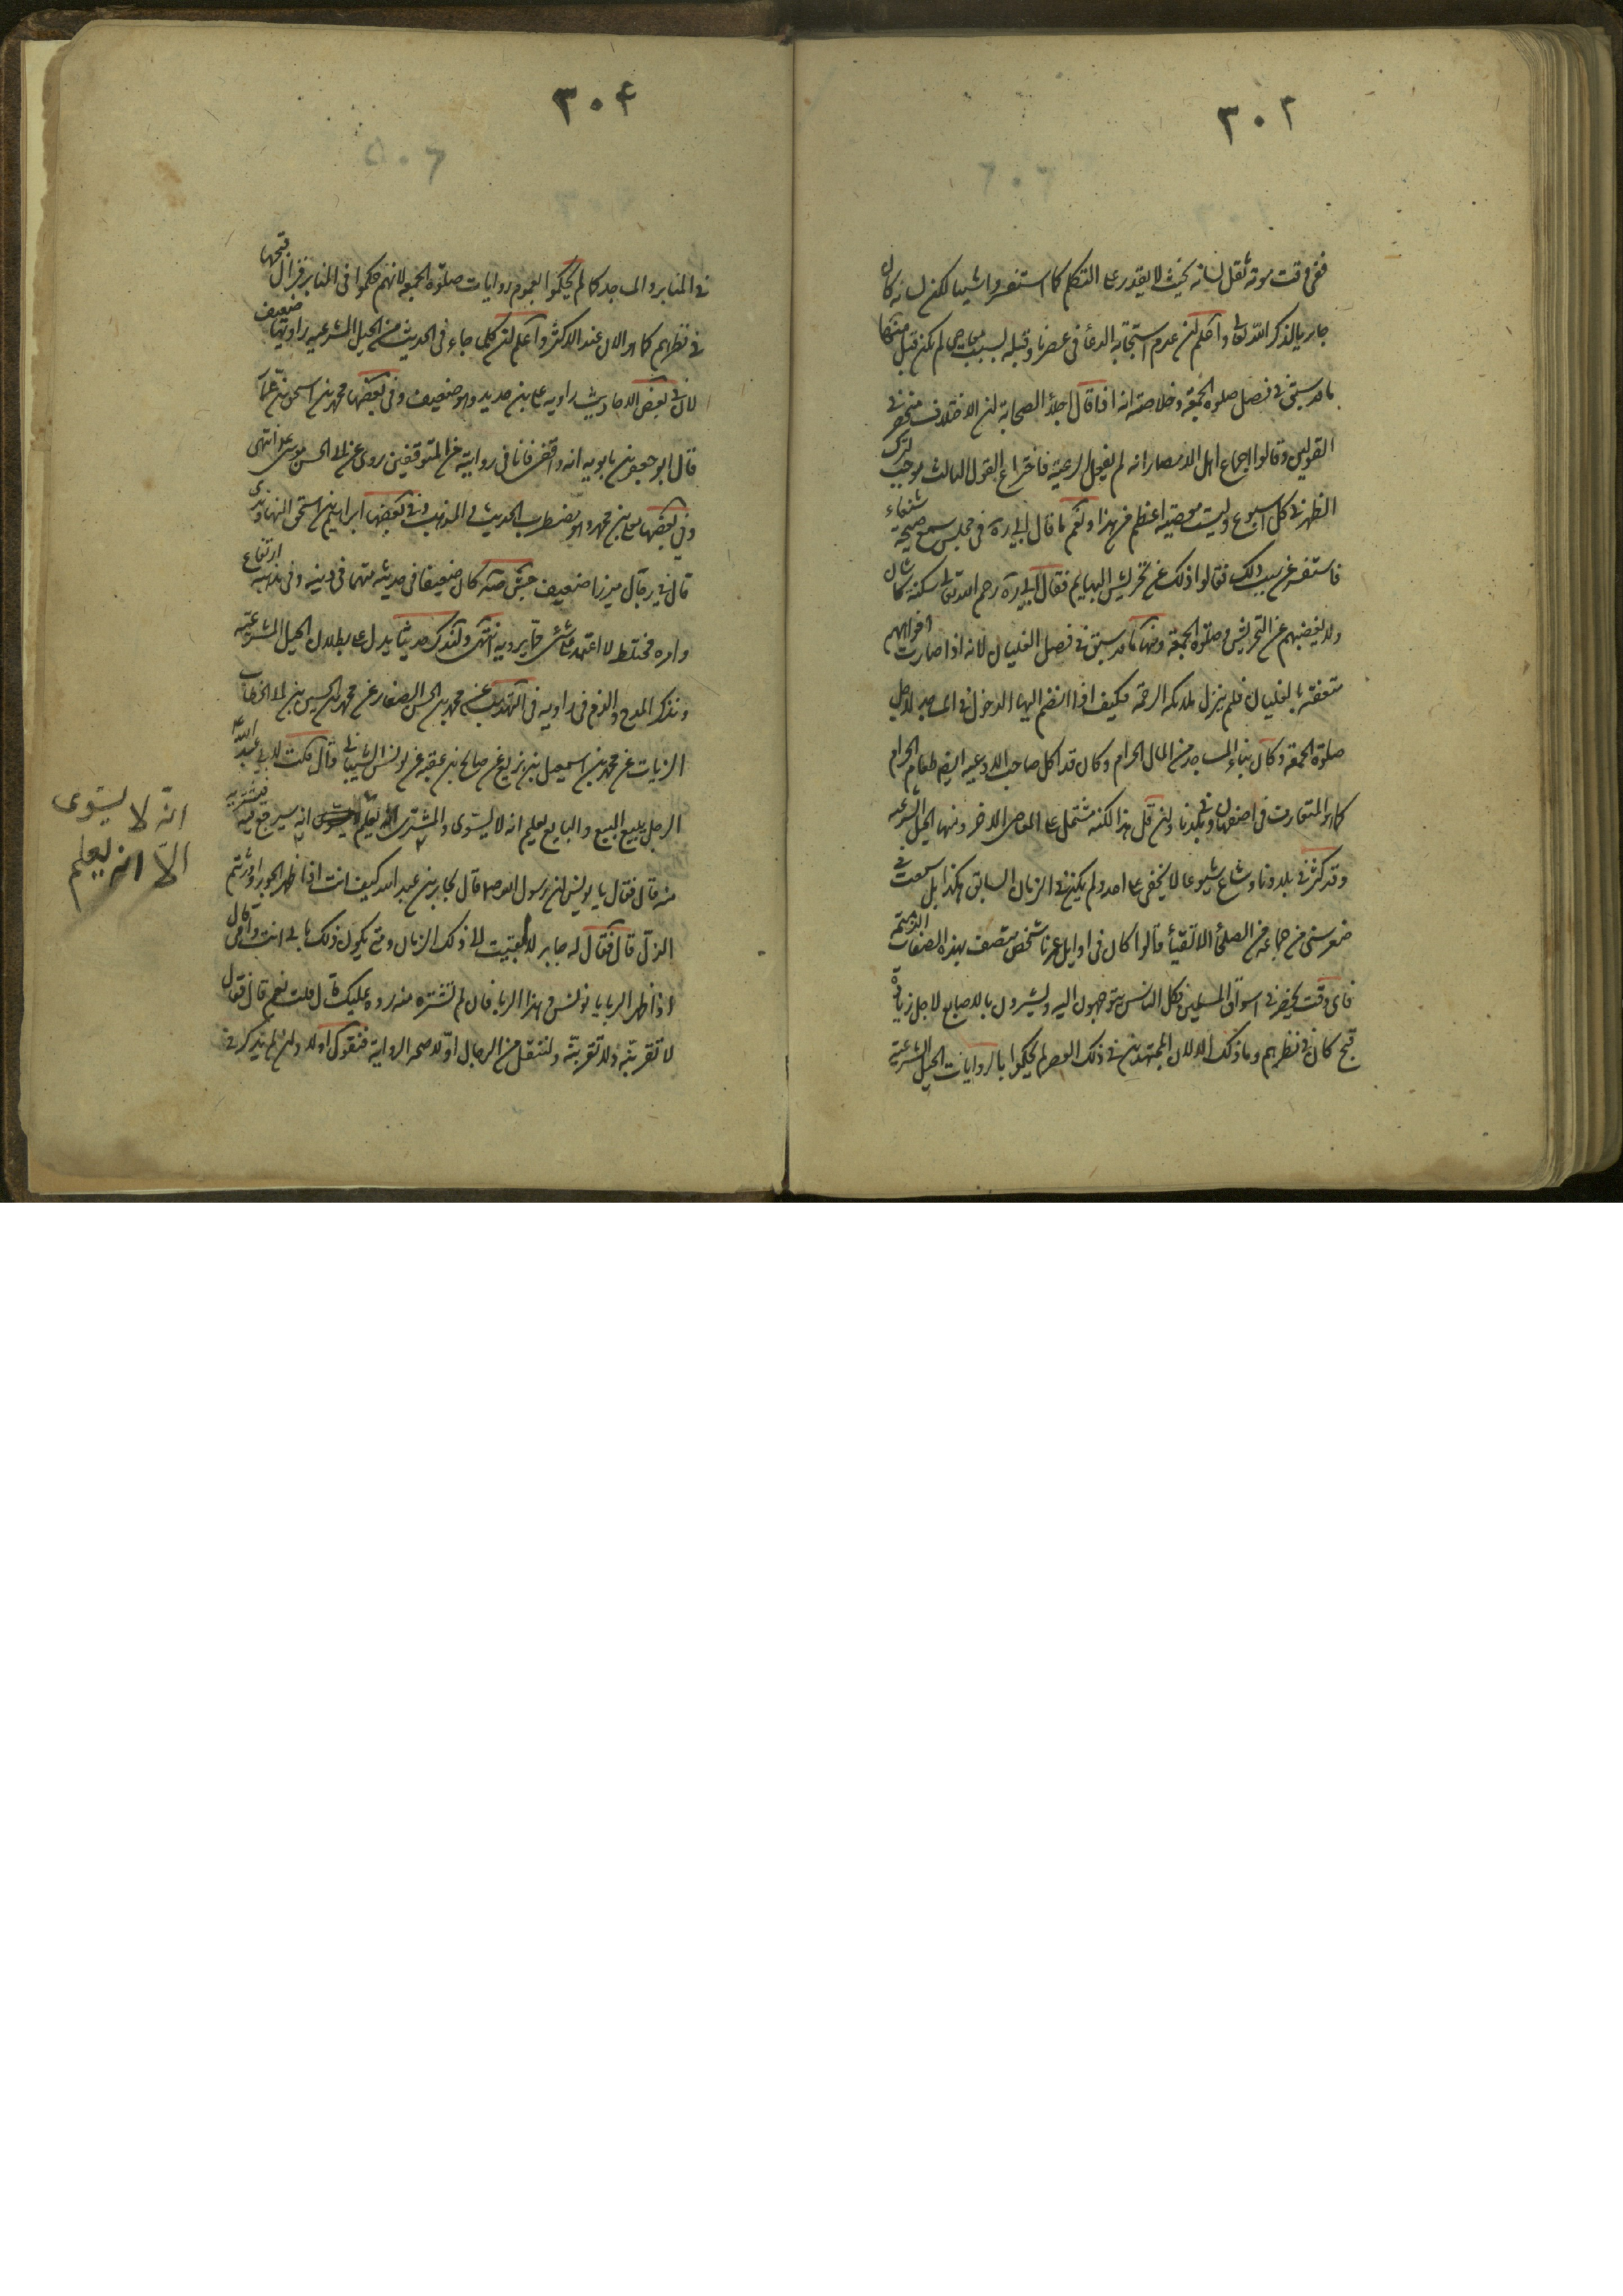 ٣٠٢
ففى وقت موته ثقل لسانه بحيث لا يقدر على التكلم كلما استفسروا شيئا لكن لسانه كان
جاريا بالذكر الله تعالى واعلم ان عدم استجابة الدعاء فى عصرنا وقبله بسبب معاصى لم يكن قبل منها
ما قد سبق فى فصل صلوة الجمعة وخلاصته انه اذا قال اجلاء الصحابة ان الاختلاف منحصر فى
القولين وقالوا اجماع اهل الامصار انه لم يقل الرعية فاختراع القول الثالث يوجب لترك
الظهر فى كل اسبوع وليست معصية اعظم من هذا ونعم ما قال فى مجلس سمع صيحة شنعاء
فاستفسر عن سبب ذلك فقالوا ذلك عن تحريش البهايم فقال رحم الله سكنة كاشان
ولا يغضبهم عن التحريش فى صلوة الجمعة ومنها ما قد سبق فى فصل الغليان لانه اذا صارت افواههم
متعفنة بالغليان فلم ينزل ملائكة الرحمة فكيف اذا انضم اليها الدخول فى المساجد لاجل
صلوة الجمعة وكان بناء المسجد من المال الحرام وكان قد اكل صاحب الادعية ايضا طعام الحرام
كما هو المتعارف فى اصفهان وفى بلدنا وان قل هذا لكنه مشتمل على المعاصى الاخر ومنها الحيل الشرعيه
وقد كثر فى بلادنا وشاع شيوعا لا يخفى على احد ولم يكن فى الزمان السابق هكذا بل سمعت فى
صغر سنى من جماعة من الصلحاء الاتقياء قالوا كان فى اوايل عمرنا شخص متصف بهذه الصفات الذميمة
فاى وقت يحضر فى اسواق المسلمين فكل الناس يتوجهون اليه ويشيرون بالاصابع لاجل زيادة
قبح كان فى نظرهم وما ذلك الا لان المجتهدين فى ذلك العصر لم يحكموا بالروايات الحيل الشرعية
٣٠٤
فى المنابر والمساجد كما لم يحكموا بعموم روايات صلوة الجمعة لانهم حكموا فى المنابر فزال قبحها
فى نظرهم كما هو الان عند الاكثر واعلم ان كلما جاء فى الحديث من الحيل الشرعيه راويها ضعيف
لان فى بعض الاحاديث راويه على بن حديد وهو ضعيف وفى بعضها محمد بن اسحق بن عمار
قال ابو جعفر بن بابويه انه واقفى فانا فى روايته من المتوقفين روى عن ابى الحسن موسى ع انتهى
وفى بعضها معلى بن محمد وهو مضطرب الحديث والمذهب وفى بعضها ابراهيم بن اسحق النهاوندى
قال فى رجال ميرزا ضعيف جش صه كان ضعيفا فى حديثه متهما فى دينه وفى مذهبه ارتفاع
وامره مختلط لا اعتمد على شئ مما يرويه انتهى ولنذكر حديثا يدل على بطلان الحيل الشرعية
ونذكر المدح والذم فى راويه فى التهذيب عن محمد بن الحسن الصفار عن محمد بن الحسين بن ابى الخطاب
الزيات عن محمد بن اسمعيل بن بزيع عن صالح بن عقبه عن يونس الشيبانى قال قلت لابى عبد الله ع
الرجل يبيع البيع والبايع يعلم انه لا يستوى والمشترى يعلم انه سيرجع فيه فيشتريه
منه قال فقال يا يونس ان رسول الله ص قال لجابر بن عبد الله كيف انت اذا ظهر الجور اورثتم
الذل قال فقال له جابر لا بقيت الى ذلك الزمان ومتى يكون ذلك بابى انت وامى قال
اذا ظهر الربا يا يونس وهذا الربا فان لم تشتره منه رده عليك قال قلت نعم قال فقال
لا تقربنه ولا تقربنه ولننقل من الرجال اولا صحة الرواية فنقول اولا وان لم يذكر فى
انه لا يستوى
الا انه يعلم